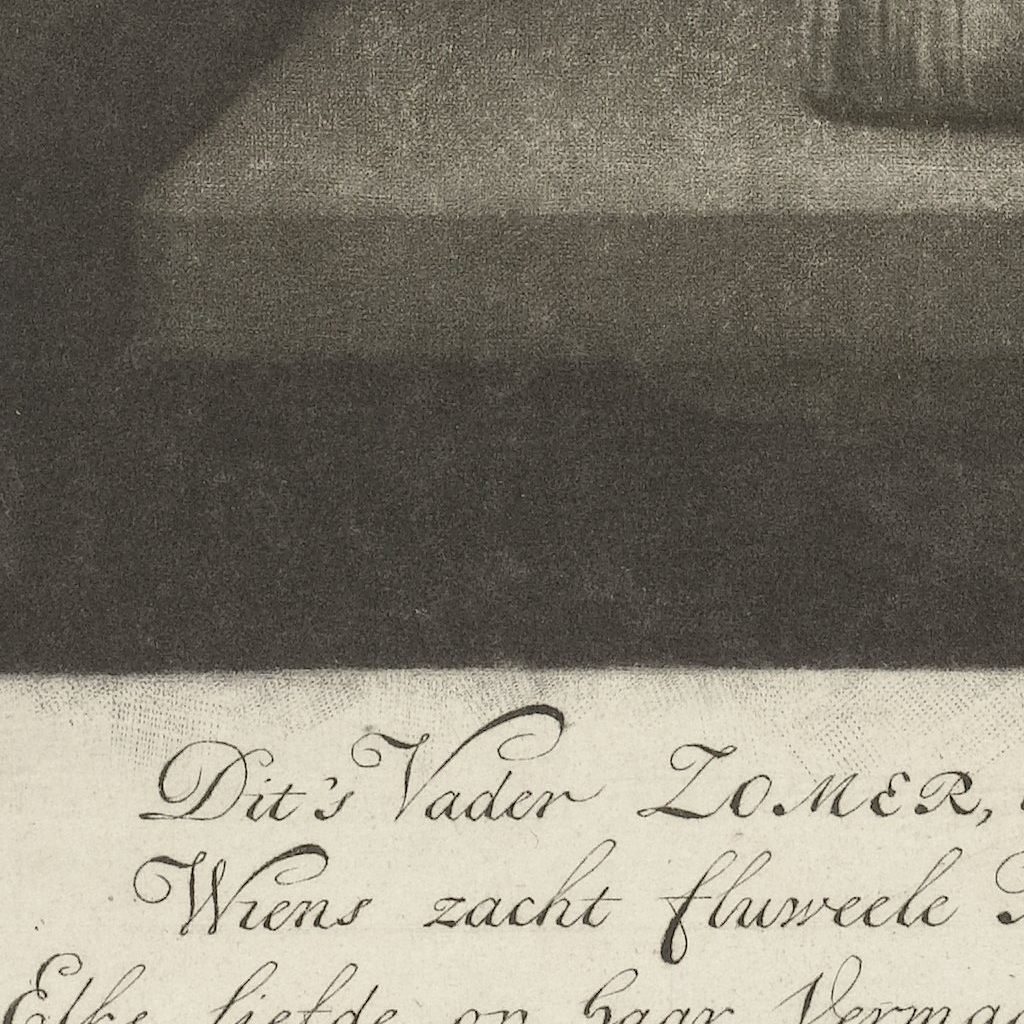 Dit's Vader ZOMER,
Wiens zacht fluweele
Elke liefde op haar